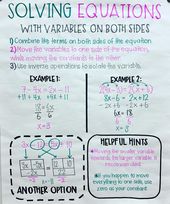 SOLVING EQUATIONS
WITH VARIABLES ON BOTH SIDES
1) Combine like terms on both sides of the equation
2) Move the variables to one side of the equation,
while moving the constants to the other
3) Use inverse operations to isolate the variable.
EXAMPLE 1:
7-4x=2x-11
+11 +4x +4x +11
18=6x
6 6
x=3
EXAMPLE 2:
8x-6=2x+12
-2x+6 -2x+6
6x=18
6 6
x=3
ANOTHER OPTION
HELPFUL HINTS
Moving the smaller variable
towards the larger variable is
recommended
If you happen to move
everything to one side, use
zero as your constant